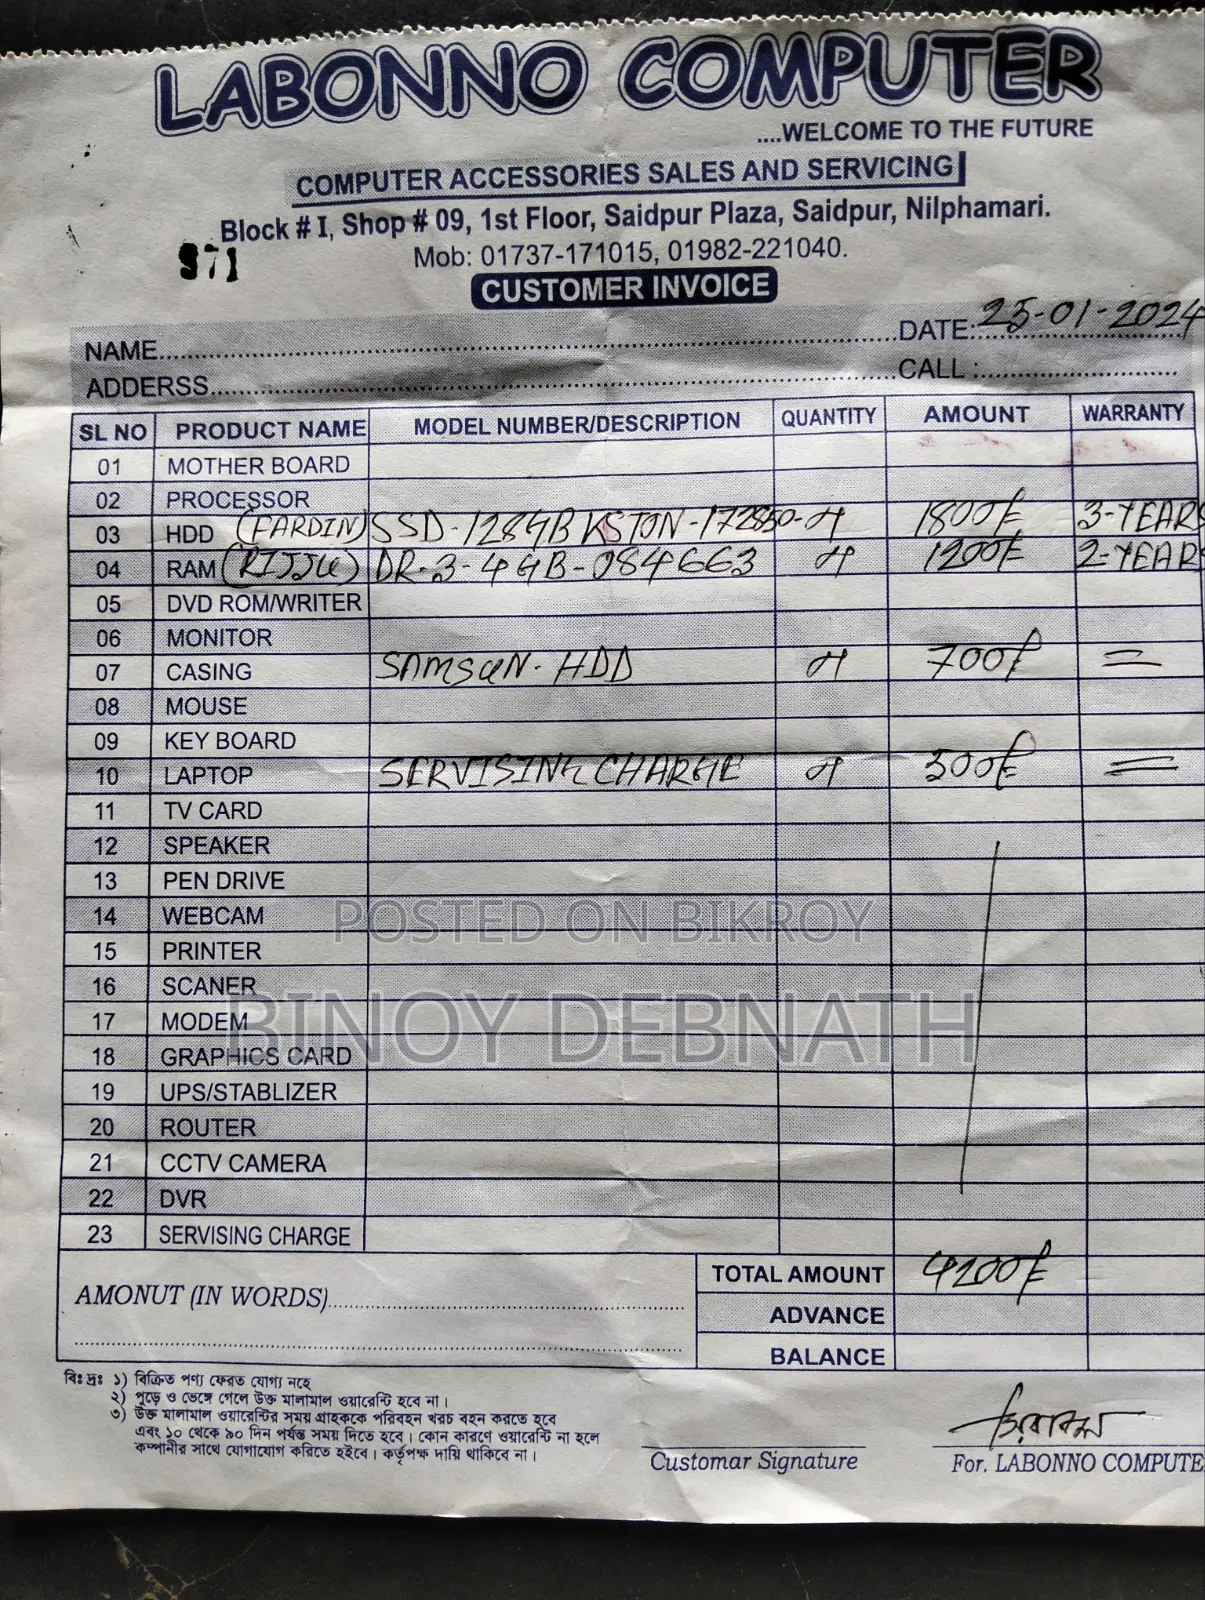 LABONNO COMPUTER
....WELCOME TO THE FUTURE
COMPUTER ACCESSORIES SALES AND SERVICING
Block # I, Shop # 09, 1st Floor, Saidpur Plaza, Saidpur, Nilphamari.
971 Mob: 01737-171015, 01982-221040.
CUSTOMER INVOICE
NAME DATE: 25-01-2024
ADDERSS CALL :
SL NO PRODUCT NAME MODEL NUMBER/DESCRIPTION QUANTITY AMOUNT WARRANTY
01 MOTHER BOARD
02 PROCESSOR
03 HDD (FARDIN) SSD-128GB KSTON-172850- 1800/- 3-YEARS
04 RAM (RIJJU) DR-3-4GB-084663 1200/- 2-YEAR
05 DVD ROM/WRITER
06 MONITOR
07 CASING SAMSUN-HDD 700/- =
08 MOUSE
09 KEY BOARD
10 LAPTOP SERVISING CHARGE 500/- =
11 TV CARD
12 SPEAKER
13 PEN DRIVE
14 WEBCAM
POSTED ON BIKROY
15 PRINTER
16 SCANER
17 MODEM
BINOY DEBNATH
18 GRAPHICS CARD
19 UPS/STABLIZER
20 ROUTER
21 CCTV CAMERA
22 DVR
23 SERVISING CHARGE
TOTAL AMOUNT 4200/-
AMONUT (IN WORDS)
ADVANCE
BALANCE
বিঃ দ্রঃ ১) বিক্রিত পণ্য ফেরত যোগ্য নহে
২) পুড়ে ও ভেঙ্গে গেলে উক্ত মালামাল ওয়ারেন্টি হবে না।
৩) উক্ত মালামাল ওয়ারেন্টির সময় গ্রাহককে পরিবহন খরচ বহন করতে হবে
এবং ১০ থেকে ৯০ দিন পর্যন্ত সময় দিতে হবে। কোন কারণে ওয়ারেন্টি না হলে
কম্পানীর সাথে যোগাযোগ করিতে হইবে। কর্তৃপক্ষ দায়ি থাকিবে না।
Customar Signature For. LABONNO COMPUTE